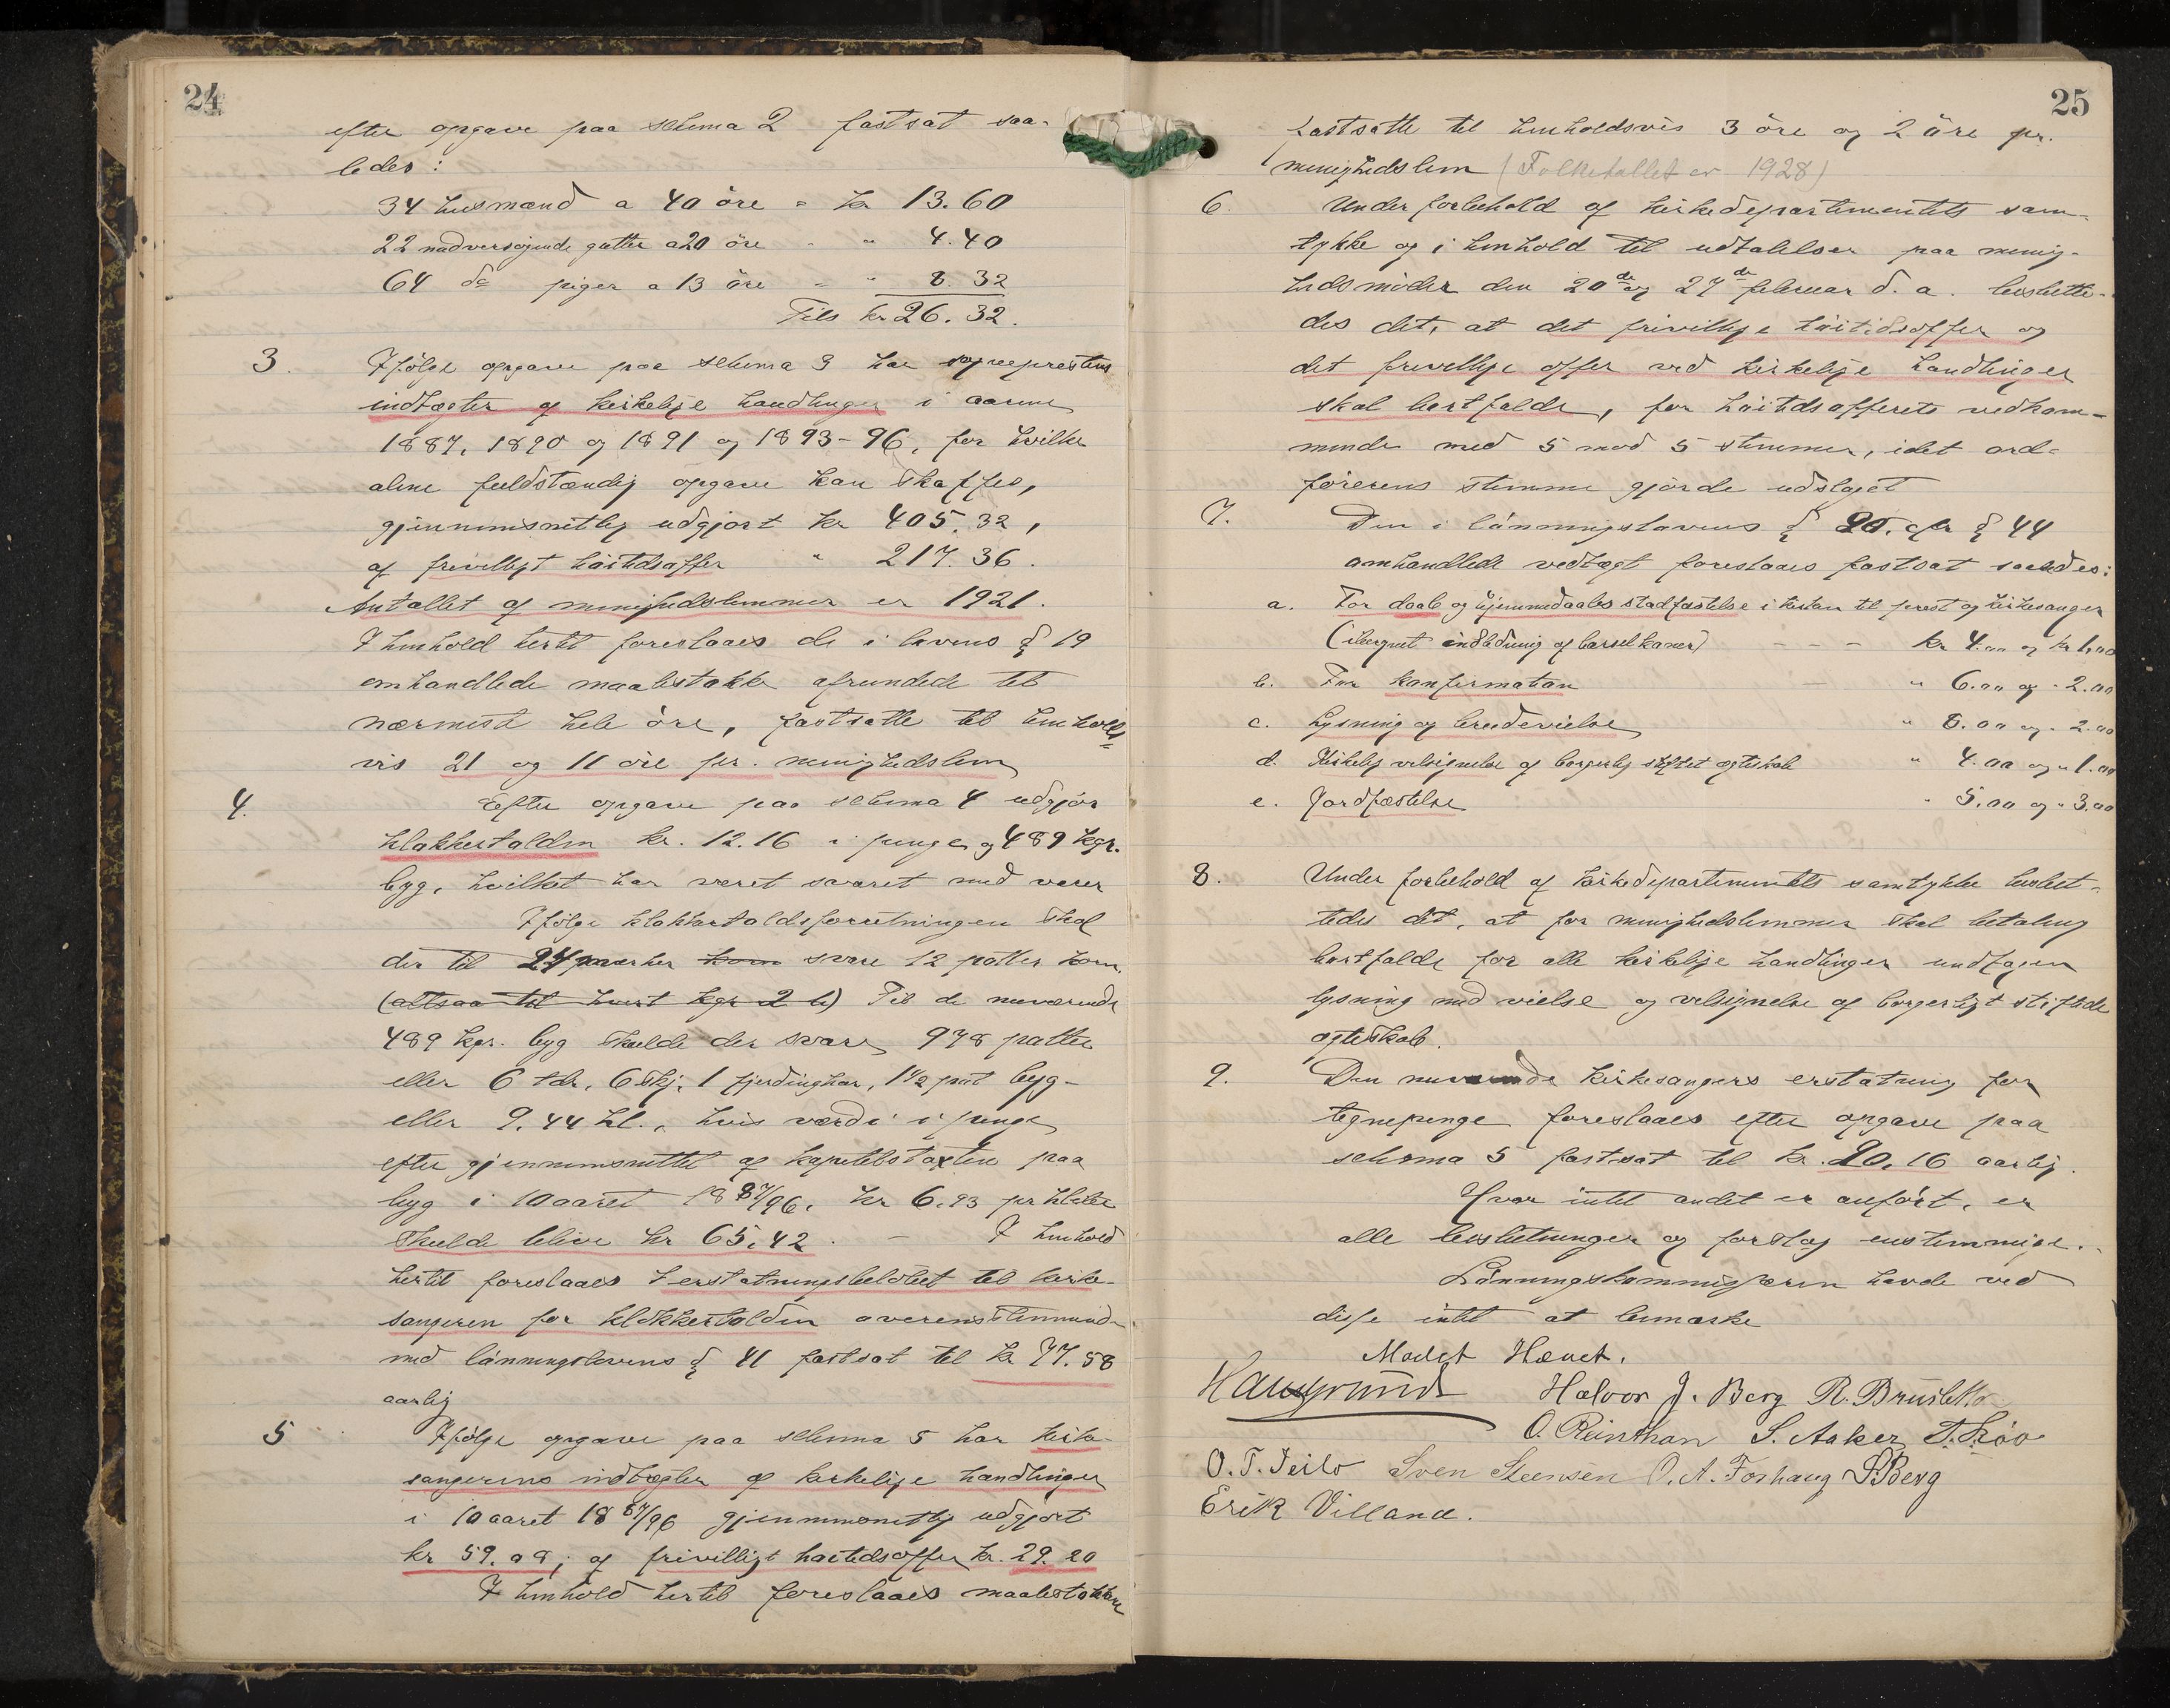 24
efter opgave paa schema 2 fastsat saa-
ledes:
34 husmænd a 40 öre = kr 13.60
22 nadversøgende gutter a 20 öre - " 4.40
64 do piger a 13 öre - " 8.32
Tils kr 26.32.
3. Ifölge opgave paa schema 3 har sogneprestens
indtægter af kirkelige handlinger i aarene
1887, 1890 og 1891 og 1893-96, for hvilke
alene fuldstændig opgave kan skaffes,
gjennemsnitlig udgjort kr 405.32,
af frivilligt höitidsoffer " 217.36.
Antallet af menighedslemmer er 1921.
I henhold hertil foreslaaes de i lovens § 19
omhandlede maalestokke afrundede til
nærmeste hele öre, fastsatte til henholds-
vis 21 og 11 öre pr. menighedslem
4. Efter opgave paa schema 4 udgjör
klokkertolden kr. 12.16 i penge og 489 kgr.
byg, hvilket har været svaret med varer
Ifölge klokkertoldsforretningen skal
der til 24 marker korn svare 12 potter korn.
(altsaa til hvert kgr 2 l) Til de nuværende
489 kgr. byg skulde der svare 978 potter
eller 6 tdr, 6 skj. 1 fjerdingkar, 1 1/2 pot byg-
eller 9.44 hl., hvis værdi i penge
efter gjennemsnittet af kapitelstaxten paa
byg i 10 aaret 1887/96, kr 6.93 pr hliter
skulde blive kr 65,42. - I henhold
hertil foreslaaes erstatningsbelöbet til kirke-
sangeren for klokkertolden overensstemmende
med lönningslovens § 41 fastsat til kr 77.58
aarlig
5 Ifölge opgave paa schema 5 har kirke-
sangerens indtægter af kirkelige handlinger
i 10 aaret 1887/96 gjennemsnitlig udgjort
kr 59.09, af frivilligt höitidsoffer kr. 29.20
I henhold hertil foreslaaes maalestokkene
25
fastsatte til henholdsvis 3 öre og 2 öre pr.
menighedslem (Folketallet er 1928)
6. Under forbehold af kirkedepartementets sam-
tykke og i henhold til udtalelser paa menig-
hedsmöder den 20de og 27de februar d. a. beslutte-
des det, at det frivillige höitidsoffer og
det frivillige offer ved kirkelige handlinger
skal bortfalde, for höitidsofferets vedkom-
mende med 5 mod 5 stemmer, idet ord-
förerens stemme gjorde udslaget
7. Den i lönningslovens § 20, cfr § 44
omhandlede vedtægt foreslaaes fastsat saaledes:
a. For daab og hjemmedaabs stadfæstelse i kirken til prest og kirkesanger
(iberegnet indledning af barselkoner) - - - kr 4.00 og kr 1,00
b. For konfirmation - " 6.00 og - 2.00
c. Lysning og brudevielse " 8.00 og - 2.00
d. Kirkelig velsignelse af borgerlig stiftet ægteskab " 4.00 og " 1.00
e. Jordfæstelse " 5.00 og " 3.00
8. Under forbehold af kirkedepartementets samtykke beslut-
tedes det, at for menighedslemmer skal betaling
bortfalde for alle kirkelige handlinger undtagen
lysning med vielse og velsignelse af borgerligt stiftede
ægteskab.
9. Den nuværende kirkesangers erstatning for
tegnepenge foreslaaes efter opgave paa
schema 5 fastsat til kr. 20,16 aarlig.
Hvor intet andet er anfört, er
alle beslutninger og forslag enstemmige.
Lönningskommissæren havde ved
disse intet at bemærke
Mödet Hævet.
Haugrund Halvor J. Berg R. Brusletto
O. Reinthon S. Aaker
O. T. Teilo Sven Steensen O. A. Forhaug Berg
Erik Villand.